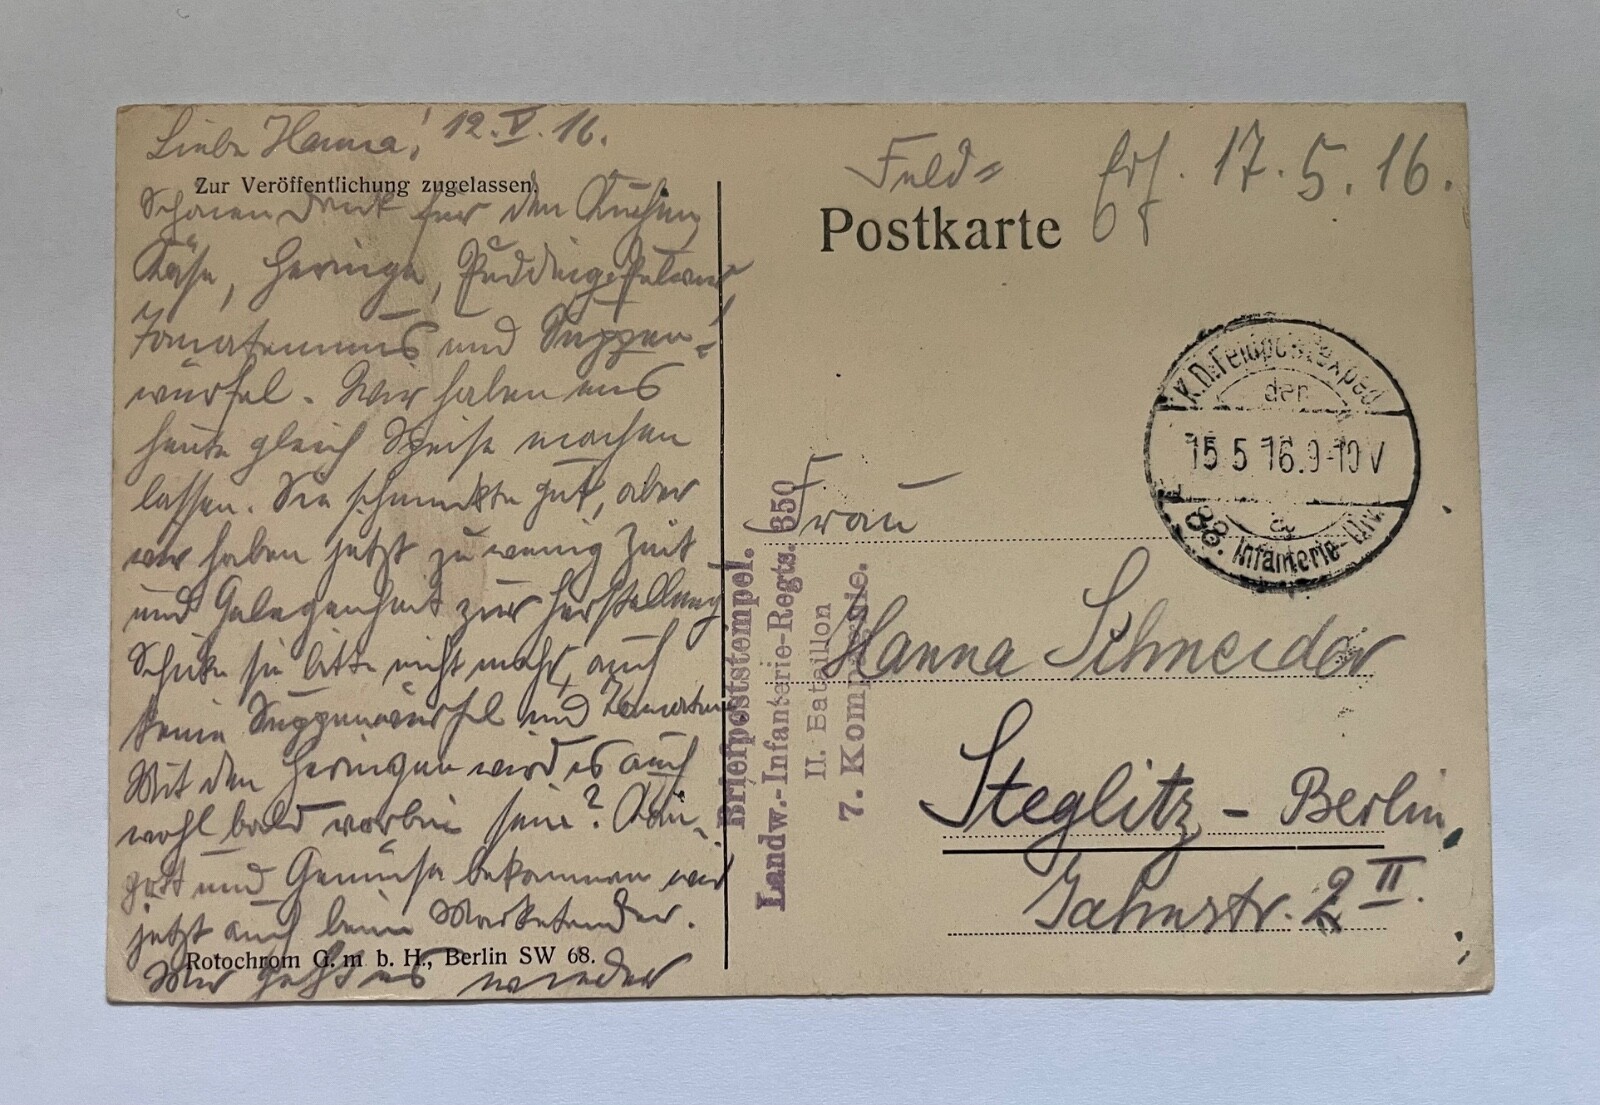 Liebe Hanna! 12.V.16.
Zur Veröffentlichung zugelassen.
Schönen Dank für den Kuchen,
Käse, Heringe, Pudding-Pulver,
Tomatenmus und Suppen-
würfel. Wir haben uns
heute gleich Speise machen
lassen. Sie schmeckte gut, aber
wir haben jetzt zu wenig Zeit
und Gelegenheit zur Herstellung
Schicke sie bitte nicht mehr, auch
keine Suppenwürfel und Tomaten
Mit den Heringen wird es auch
wohl bald vorbei sein?
und Gemüse bekommen wir
jetzt auch beim Marketender.
Rotochrom G. m. b. H., Berlin SW 68.
Mir geht es wieder
Feld=
Postkarte
Erh. 17.5.16.
K.D. Feldpostexped
der
15 5 16.9-10 V
a
88. Infanterie-Div.
Briefpoststempel.
Landw.-Infanterie-Regts. 350
II. Bataillon
7. Kompagnie.
Frau
Hanna Schneider
Steglitz - Berlin
Jahnstr. 2 II.